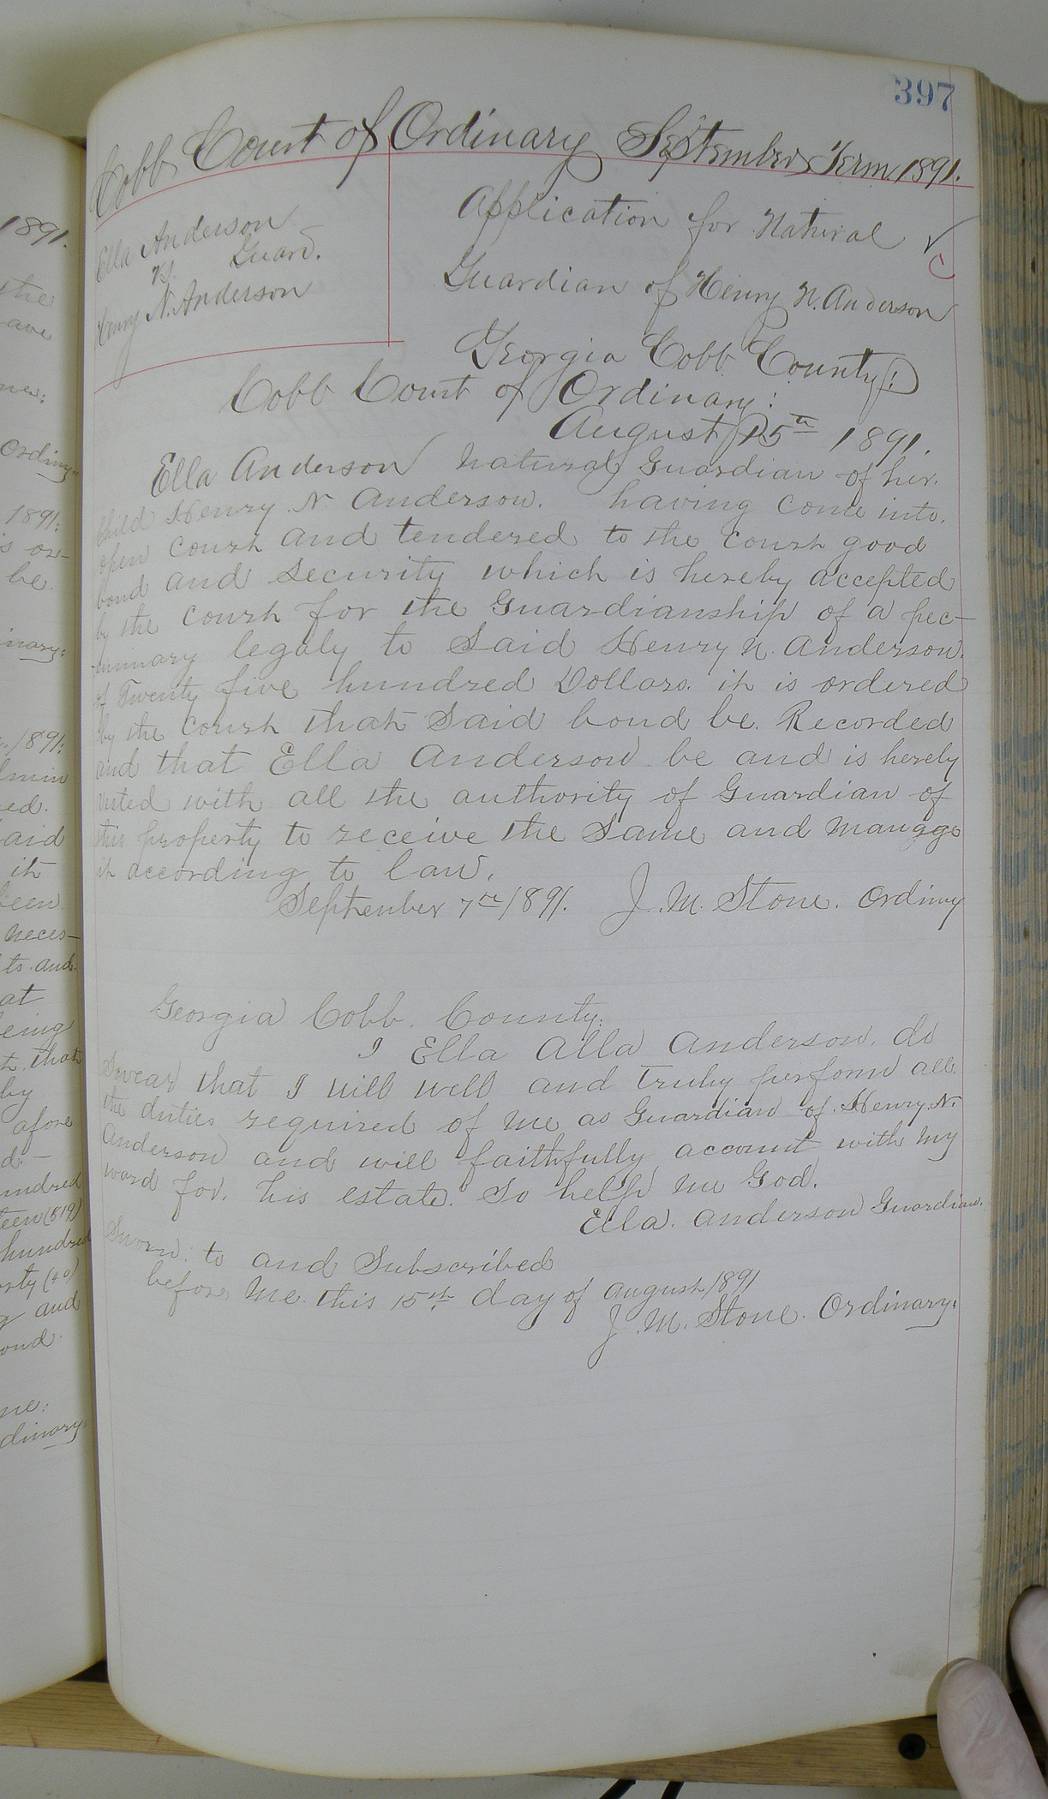 397
Cobb Court of Ordinary September Term 1891.
Ella Anderson
vs. Guard.
Henry N. Anderson
Application for Natural
Guardian of Henry N. Anderson
Georgia Cobb County:
Cobb Court of Ordinary:
August 15th 1891.
Ella Anderson natural Guardian of her.
child Henry N. Anderson. having come into.
open court and tendered to the court good
bond and security which is hereby accepted
by the court for the Guardianship of a pec-
unnary legaly to Said Henry N. Anderson.
of Twenty five hundred Dollars. it is ordered
by the court that Said bond be. Recorded
and that Ella Anderson be and is hereby
vested with all the authority of Guardian of
this property to receive the Same and Manage
it according to law.
September 7th 1891. J. M. Stone. Ordinry
Georgia Cobb. County:
I Ella Alla Anderson. do
Swear that I will well and truly perform all.
the duties required of me as Guardian of Henry N.
Anderson and will faithfully account with my
ward for. his estate. So help me God.
Ella. Anderson Guardian.
Sworn to and Subscribed
before Me this 15th day of August 1891
J. M. Stone. Ordinary.
1891.
the
ave
Ordiny
1891:
is or-
be
inary:
1891:
dmin
ed.
aid
it
been
neces-
to and
at
being
t. that
by
afore
d-
undred
teen (519)
hundred
orty (40)
and
ond
dinary